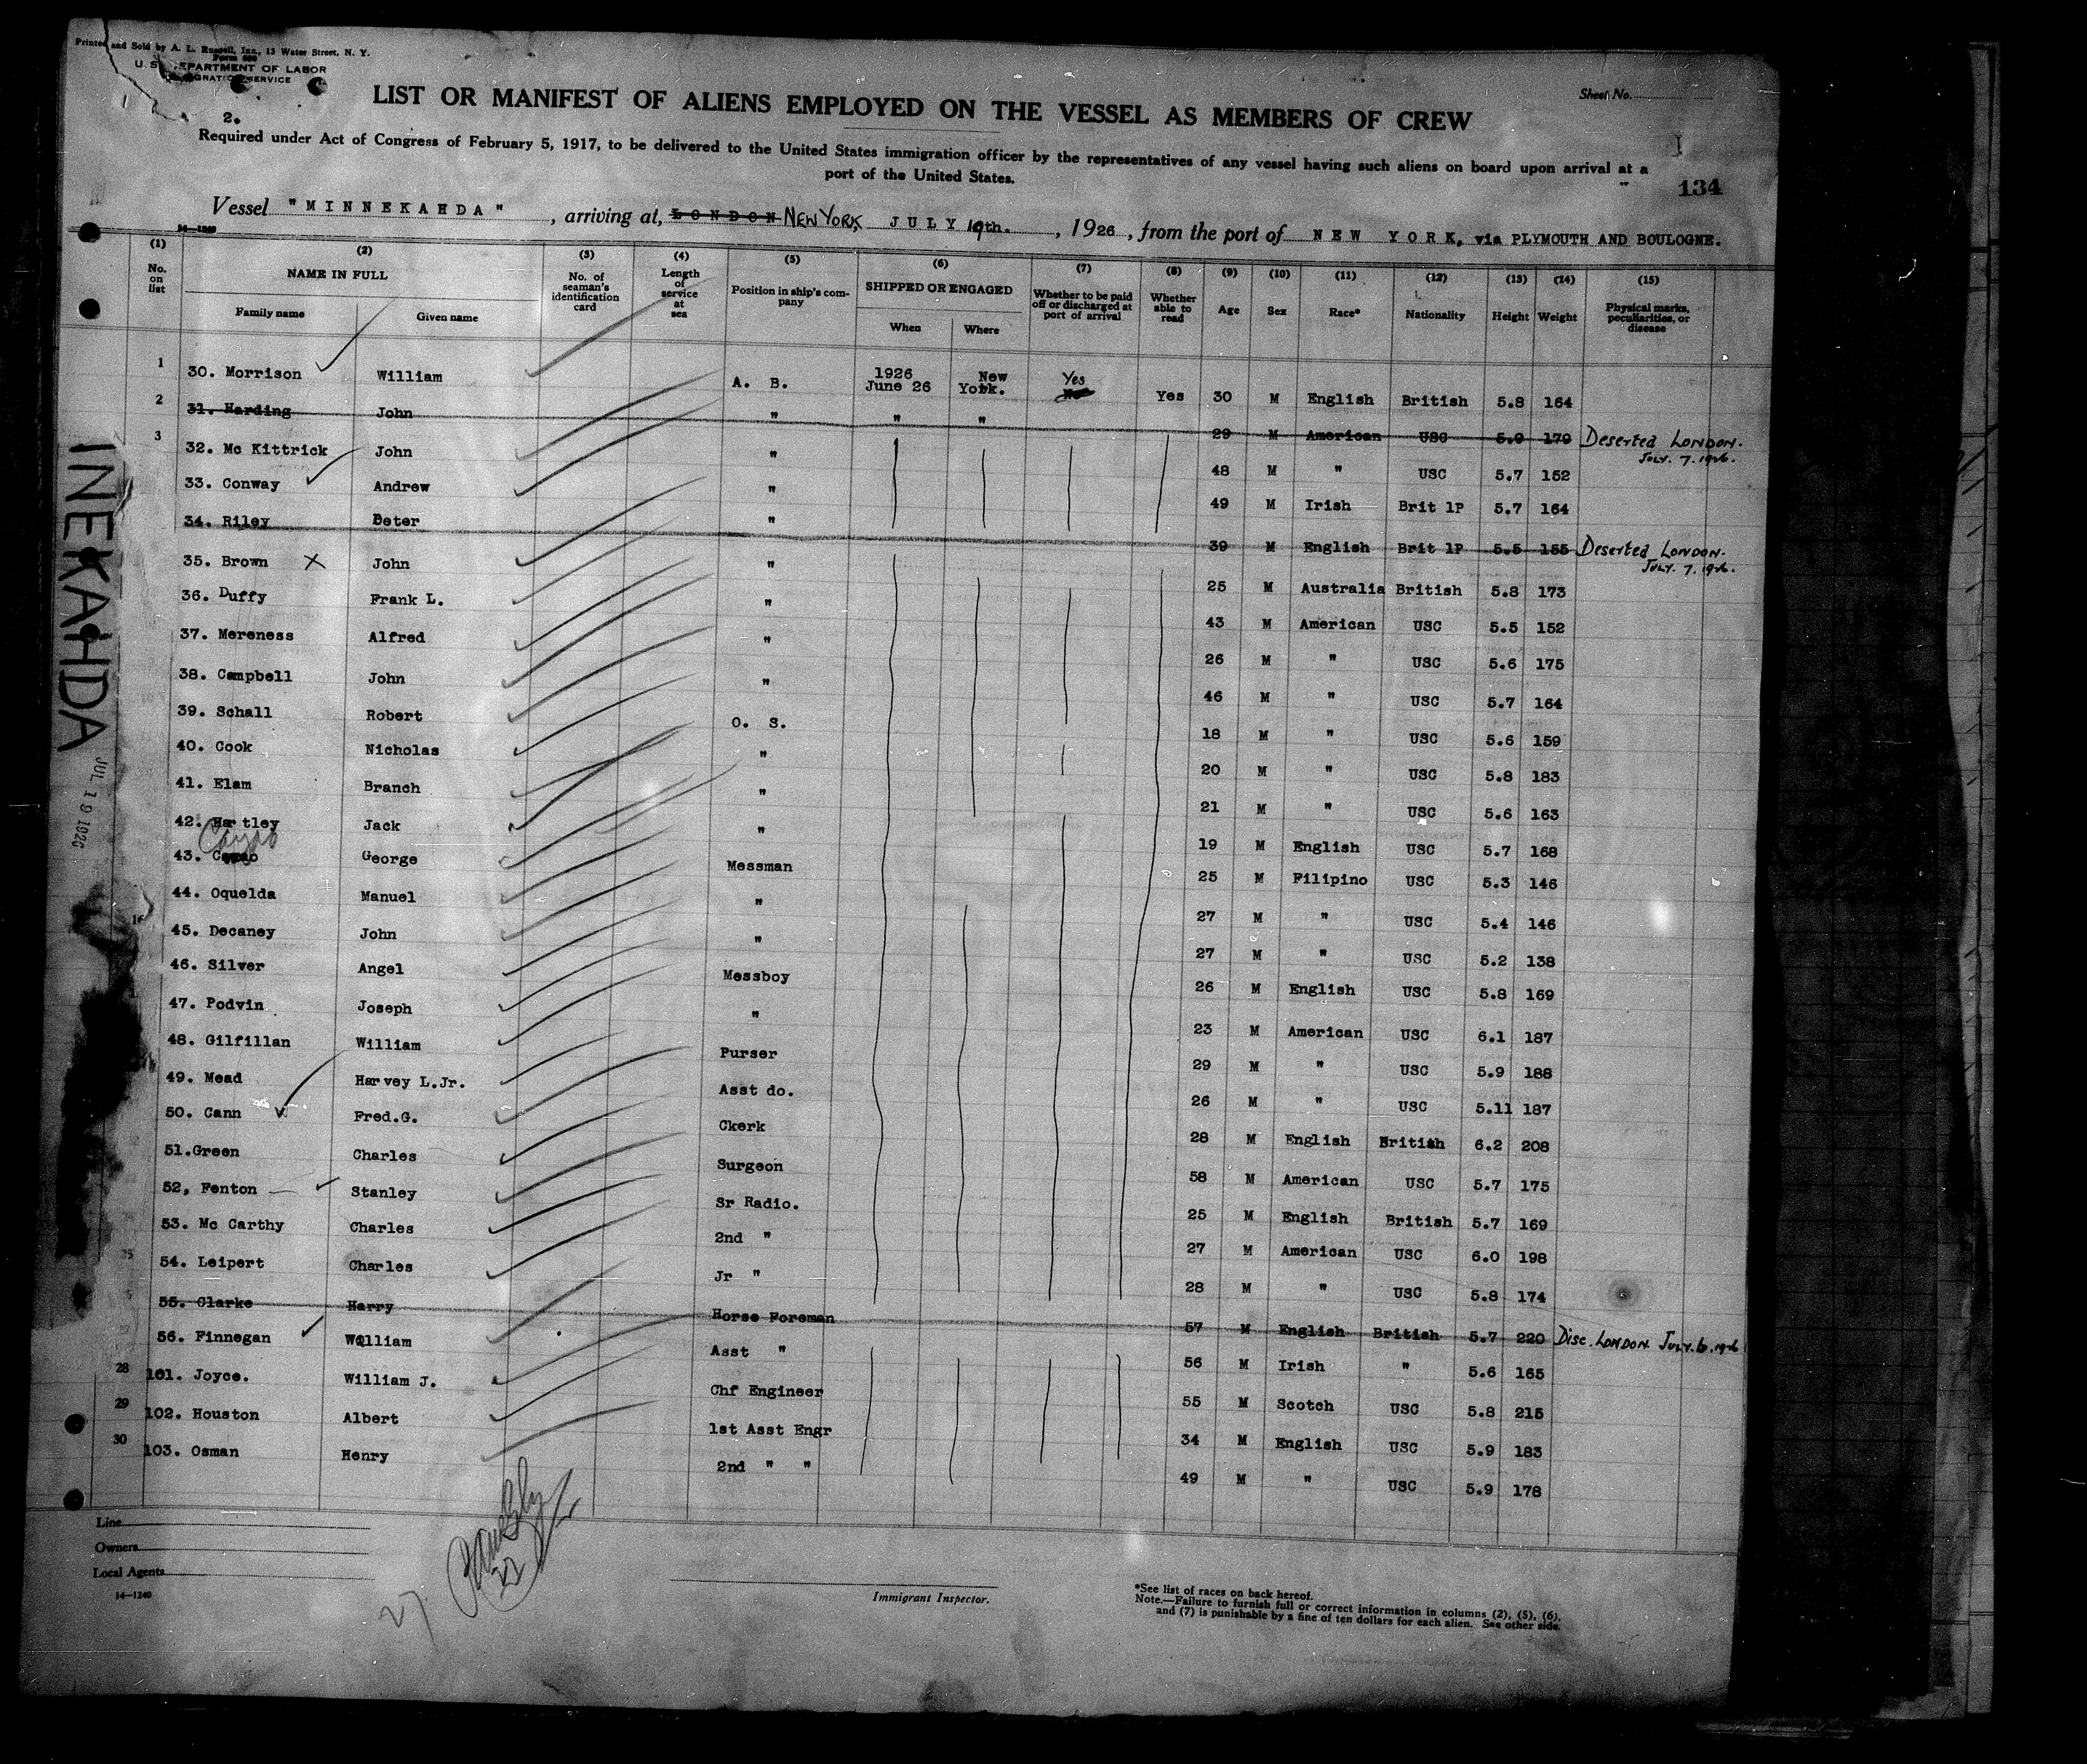 Printed and Sold by A. L. Russell, Inc., 13 Water Street, N. Y.
Form 680
U. S. DEPARTMENT OF LABOR
IMMIGRATION SERVICE
Sheet No.
LIST OR MANIFEST OF ALIENS EMPLOYED ON THE VESSEL AS MEMBERS OF CREW
2.
Required under Act of Congress of February 5, 1917, to be delivered to the United States immigration officer by the representatives of any vessel having such aliens on board upon arrival at a
port of the United States.
134
Vessel "MINNEKAHDA", arriving at, LONDON NEW YORK, JULY 19th., 1926, from the port of NEW YORK, via PLYMOUTH AND BOULOGNE.
14-1240
(1) (2) (3) (4) (5) (6) (7) (8) (9) (10) (11) (12) (13) (14) (15)
No. on list NAME IN FULL Family name Given name No. of seaman's identification card Length of service at sea Position in ship's company SHIPPED OR ENGAGED When Where Whether to be paid off or discharged at port of arrival Whether able to read Age Sex Race* Nationality Height Weight Physical marks, peculiarities, or disease
1 30. Morrison William A. B. 1926 June 26 New York. Yes Yes 30 M English British 5.8 164
2 31. Harding John " " " 29 M American USC 5.9 179 Deserted LONDON. JULY. 7. 1926.
3 32. Mc Kittrick John " 48 M " USC 5.7 152
33. Conway Andrew " 49 M Irish Brit 1P 5.7 164
34. Riley Peter " 39 M English Brit 1P 5.5 155 Deserted LONDON. JULY. 7. 1926.
35. Brown X John " 25 M Australia British 5.8 173
36. Duffy Frank L. " 43 M American USC 5.5 152
37. Mereness Alfred " 26 M " USC 5.6 175
38. Campbell John " 46 M " USC 5.7 164
39. Schall Robert O. S. 18 M " USC 5.6 159
40. Cook Nicholas " 20 M " USC 5.8 183
41. Elam Branch " 21 M " USC 5.6 163
42. Hartley Jack " 19 M English USC 5.7 168
43. George Messman 25 M Filipino USC 5.3 146
44. Oquelda Manuel " 27 M " USC 5.4 146
16 45. Decaney John " 27 M " USC 5.2 138
46. Silver Angel Messboy 26 M English USC 5.8 169
47. Podvin Joseph " 23 M American USC 6.1 187
48. Gilfillan William Purser 29 M " USC 5.9 188
49. Mead Harvey L.Jr. Asst do. 26 M " USC 5.11 187
50. Cann Fred.G. Ckerk 28 M English British 6.2 208
51.Green Charles Surgeon 58 M American USC 5.7 175
52, Fenton Stanley Sr Radio. 25 M English British 5.7 169
53. Mc Carthy Charles 2nd " 27 M American USC 6.0 198
25 54. Leipert Charles Jr " 28 M " USC 5.8 174
55. Clarke Harry Horse Foreman 57 M English British 5.7 220 Disc. LONDON. JULY. 6. 1926
56. Finnegan William Asst " 56 M Irish " 5.6 165
28 101. Joyce. William J. Chf Engineer 55 M Scotch USC 5.8 215
29 102. Houston Albert 1st Asst Engr 34 M English USC 5.9 183
30 103. Osman Henry 2nd " " 49 M " USC 5.9 178
INEKAHDA
JUL 19 1926
Line
Owners
Local Agents
14-1240
27
Immigrant Inspector.
*See list of races on back hereof.
Note.—Failure to furnish full or correct information in columns (2), (5), (6),
and (7) is punishable by a fine of ten dollars for each alien. See other side.